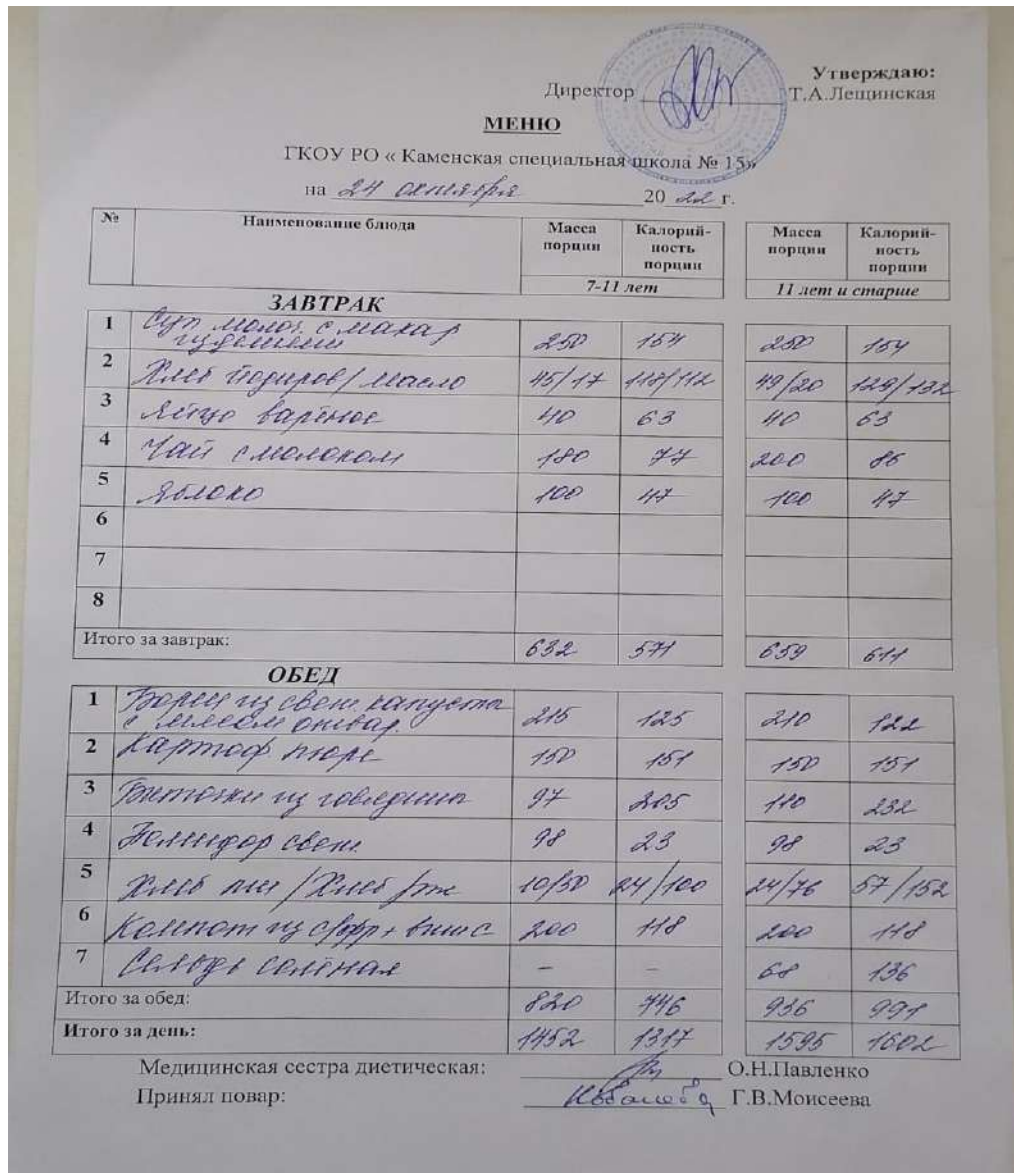 Утверждаю:
Директор Т.А.Лещинская
МЕНЮ
ГКОУ РО « Каменская специальная школа № 15»
на 24 октября 20 22 г.
№ Наименование блюда Масса порции Калорий-ность порции Масса порции Калорий-ность порции
7-11 лет 11 лет и старше
ЗАВТРАК
1 Суп молоч. с макар изделиями 250 154 250 154
2 Хлеб йодиров/масло 45/17 117/112 49/20 129/132
3 Яйцо варёное 40 63 40 63
4 Чай с молоком 180 77 200 86
5 Яблоко 100 47 100 47
6
7
8
Итого за завтрак: 632 571 659 611
ОБЕД
1 Борщ из свеж. капусты с мясом отвар. 215 125 210 122
2 Картоф. пюре 150 151 150 151
3 Биточки из говядины 97 205 110 232
4 Помидор свеж. 98 23 98 23
5 Хлеб пш / Хлеб рж 10/50 24/100 24/76 57/152
6 Компот из + вит С 200 118 200 118
7 Сельдь солёная – – 68 136
Итого за обед: 820 746 936 991
Итого за день: 1452 1317 1595 1602
Медицинская сестра диетическая: О.Н.Павленко
Принял повар: Г.В.Моисеева